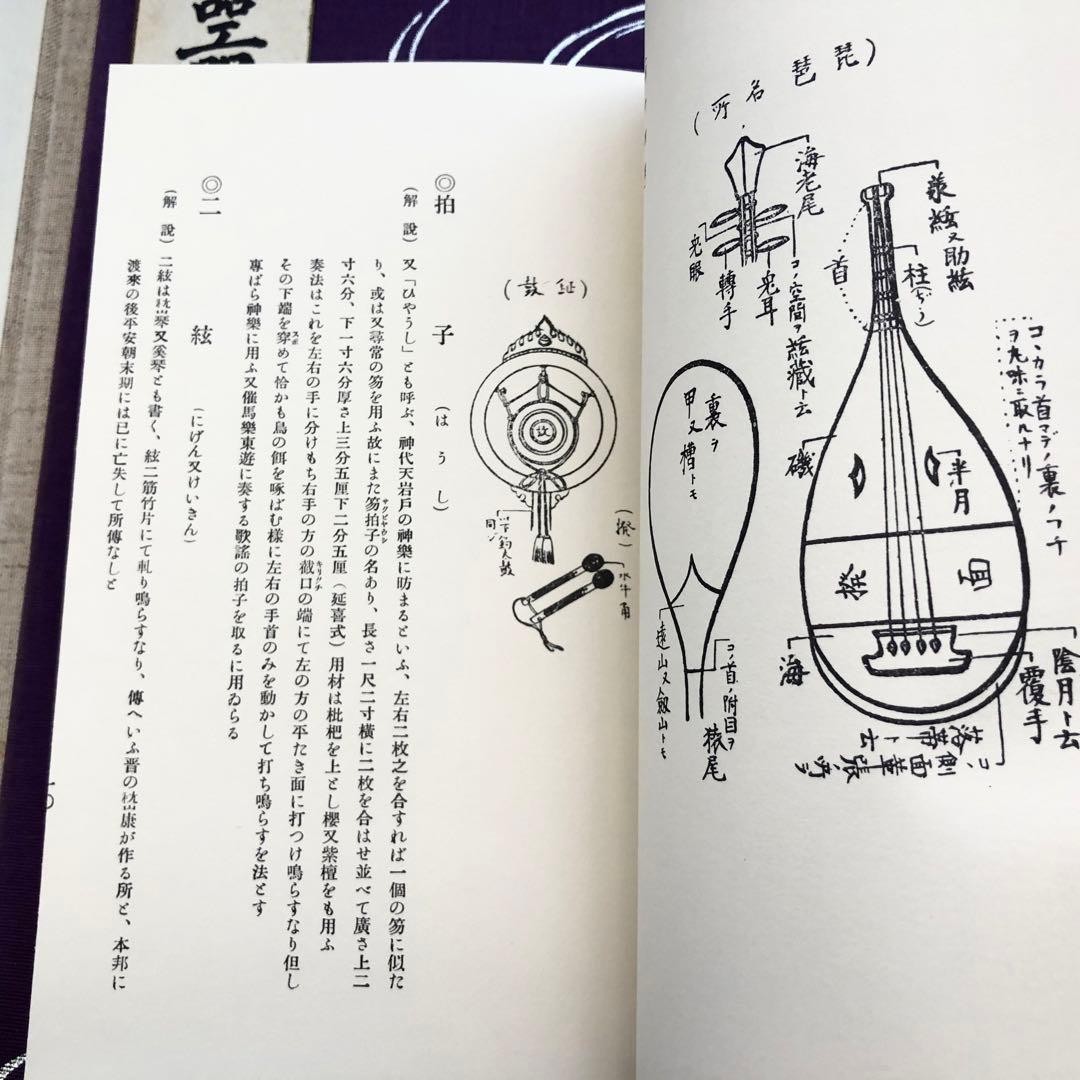 (琵琶名所)
海老尾
兎眼
轉手
兎耳
コノ空間ヲ絃藏ト云
首
柱(ぢう)
コヽカラ首マデノ裏ノフチ
裏ヲ
甲又槽トモ
磯
半月
海
陰月ト云
覆手
遠山又劔山トモ
コノ首ノ附目ヲ
猿尾
落帯ト云
(鉦鼓)
(撥)
水牛角
以下釣太鼓
同ジ
◎拍子(はうし)
(解說)又「ひやうし」とも呼ぶ、神代天岩戸の神樂に昉まるといふ、左右二枚之を合すれば一個の笏に似た
り、或は又尋常の笏を用ふ故にまた笏拍子の名あり、長さ一尺二寸橫に二枚を合はせ並べて廣さ上二
寸六分、下一寸六分厚さ上三分五厘下二分五厘(延喜式)用材は枇杷を上とし櫻又紫檀をも用ふ
奏法はこれを左右の手に分けもち右手の方の截口の端にて左の方の平たき面に打つけ鳴らすなり但し
その下端を窄めて恰かも鳥の餌を啄ばむ樣に左右の手首のみを動かして打ち鳴らすを法とす
專ばら神樂に用ふ又催馬樂東遊に奏する歌謠の拍子を取るに用ゐらる
◎二絃(にげん又けいきん)
(解說)二絃は嵆琴又奚琴とも書く、絃二筋竹片にて軋り鳴らすなり、傳へいふ晋の嵆康が作る所と、本邦に
渡來の後平安朝末期には已に亡失して所傳なしと
一〇